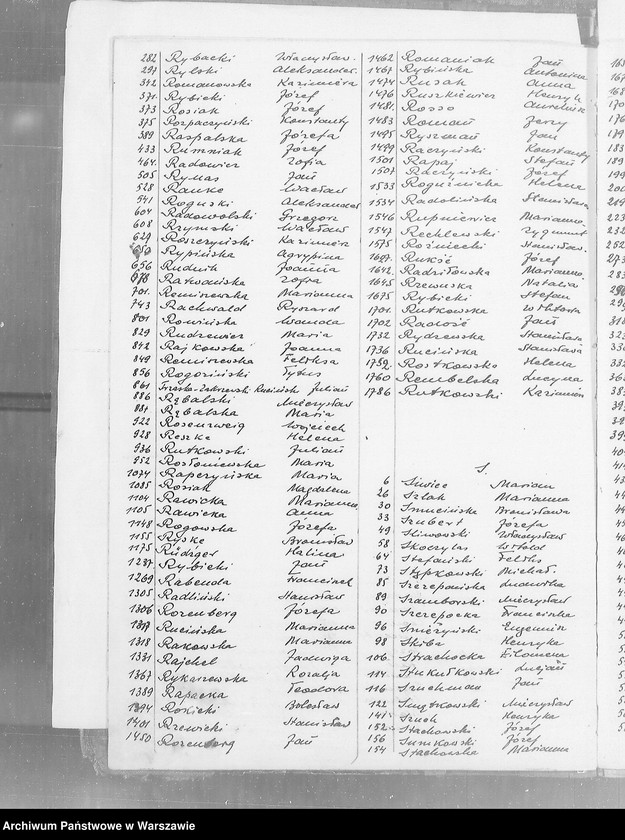 282 Rybacki Władysław
297 Rylski Aleksander
342 Romanowska Kazimiera
371 Rybicki Józef
373 Rosiak Józef
375 Rozpaczyński Konstanty
389 Raspalska Józefa
433 Rumniak Józef
464 Radowicz Zofia
505 Rymas Jan
528 Rauke Wacław
541 Roguski Aleksander
604 Radomolski Grzegorz
608 Rzymski Wacław
629 Roszczyński Kazimierz
650 Rypińska Agrypina
656 Rudnik Joanna
Ratwańska Zofia
701 Remiszewska Marianna
743 Rachwald Ryszard
801 Romińska Wanda
829 Rudziewicz Maria
842 Rajkowska Joanna
849 Remiszewska Feliksa
856 Rogoziński Tytus
861 Trzaska-Zakrzewski Ruciński Julian
886 Rąbalski Mieczysław
887 Rąbalska Maria
922 Rosenzweig Wojciech
928 Reszke Helena
936 Rutkowski Julian
952 Rosłoniewska Maria
1074 Rapczyńska Maria
1085 Rosiak Magdalena
1104 Rawicka Marianna
1105 Rawicka Anna
1148 Rogowska Józefa
1155 Ryske Bronisław
1175 Rüdiger Halina
1237 Rybicki Jan
1269 Rabenda Franciszek
1305 Radliński Stanisław
1306 Rozenberg Józefa
1309 Rucińska Marianna
1318 Rakowska Marianna
1331 Rajchel Jadwiga
1367 Rykaczewska Rozalja
1389 Rapacka Teodora
1394 Rokicki Bolesław
1401 Rzewicki Stanisław
1450 Rozenberg Jan
1462 Romaniak Jan
1467 Rybińska Antonina
1474 Rusak Anna
1476 Ruszkiewicz Henryk
1481 Rosso
1483 Roman Jerzy
1495 Ryszman Jan
1499 Raczyński Konstanty
1501 Rapaj Stefan
1507 Raczyński Józef
1533 Roguźnicka Helena
1534 Radolińska Stanisława
1546 Rupniewicz Marianna
1547 Rechlewski Zygmunt
1575 Rożniecki Stanisław
1627 Rukść Józef
1642 Radziłowska Marianna
1645 Rzewuska Natalia
1675 Rybicki Stefan
1701 Rutkowska Wiktoria
1702 Radość Jan
1732 Rydzewska Stanisława
1736 Rucińska Stanisława
1752 Rostkowska Helena
1760 Rembelska Lucyna
1786 Rutkowski Kazimierz
S.
6 Siwiec Marian
26 Szlak Marianna
30 Smucińska Bronisława
33 Szubert Józefa
49 Śliwowski Władysław
58 Skoczylas Witold
64 Stefański Feliks
73 Stypkowski Michał
85 Szczepańska
89 Szamborski Mieczysław
90 Szczepocka Franciszka
96 Śmieżyński Eugeniusz
98 Skiba Henryka
106 Strachocka Filomena
114 Stukułkowski Lucjan
116 Szuchman Jan
122 Smętkowski Mieczysław
141 Szuch Henryka
152 Stachowski Józef
156 Sumkowski Józef
154 Stachowska Marianna
Archiwum Państwowe w Warszawie